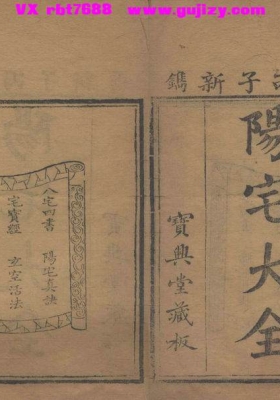 VX rbt7688 www.gujizy.com
子新鐫
陽宅大全
寶興堂藏板
八宅四書 陽宅真訣
宅寶經 玄空活法